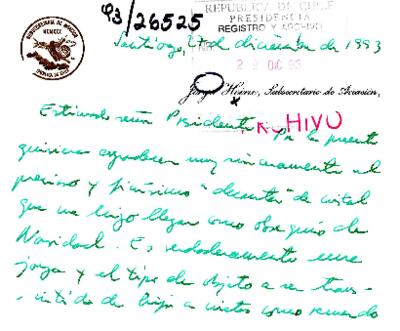 93/26525
REPUBLICA DE CHILE
PRESIDENCIA
REGISTRO Y ARCHIVO
29 DIC 93
SUBSECRETARIA DE AVIACION
MCMXXX
REPUBLICA DE CHILE
Santiago, 27 de diciembre de 1993
Jorge Heine, Subsecretario de Aviación,
ARCHIVO
Estimado señor Presidente: Por la presente
quisiera agradecer muy sinceramente el
precioso y finísimo "decanter" de cristal
que me hizo llegar como obsequio de
Navidad. Es verdaderamente una
joya y el tipo de objeto a ser trans-
mitido de hijo a nietos como recuerdo